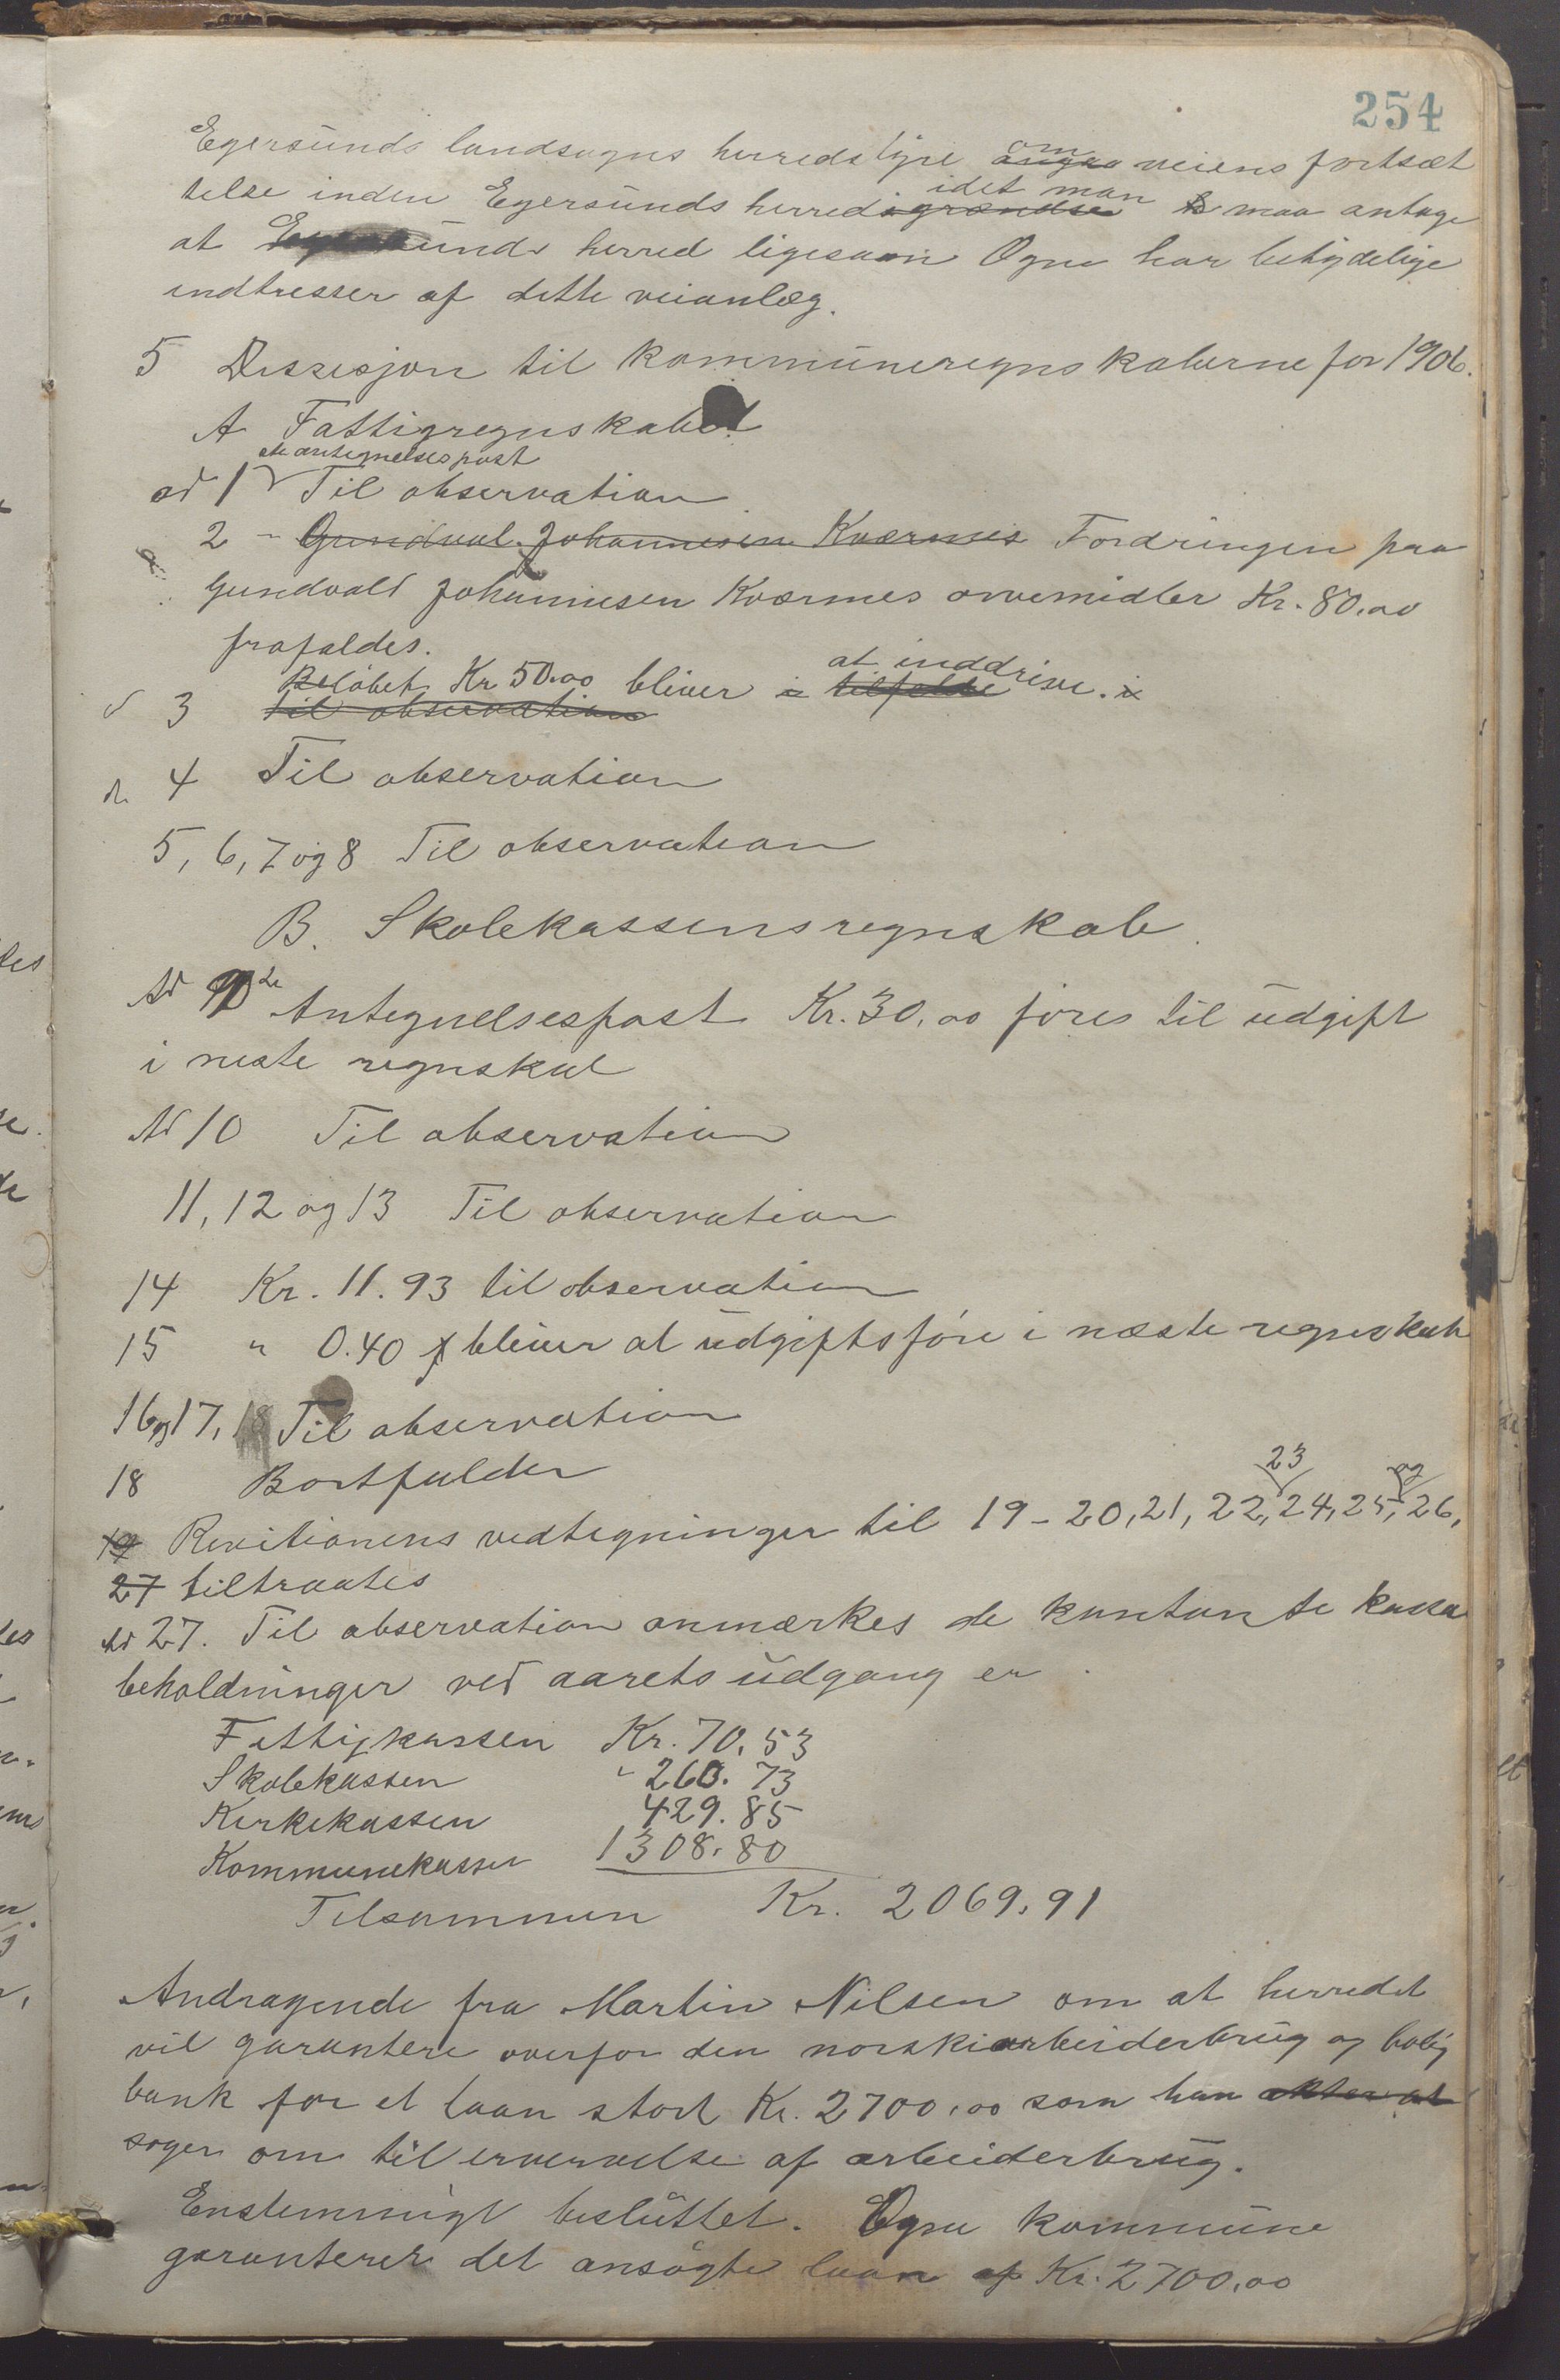 254
Egersunds landsogns herredstyre om angaa veiens fortsæt
telse inden Egersunds herredsgrændse idet man maa antage
at Egersunds herred ligesaavel Ogne har betydelige
indtresser af dette veianlæg.
5 Dessisjon til kommuneregnskaberne for 1906.
A Fattigregnskabet
ste antegnelsespost
ad 1 Til observation
2 - Gundval Johannesen Kværmes Fordringen paa
Gundvald Johannesen Kværmes arvemidler Kr. 80.00
frafaldes.
Beløbet Kr 50.00 bliver i tilfelde at inddrive.
3 til observation
4 Til observation
5, 6, 7 og 8 Til observation
B. Skolekassensregnskab
Ad 9de Antegnelsespost Kr. 30,00 føres til udgift
i neste regnskab
Ad 10 Til observation
11, 12 og 13 Til observation
14 Kr. 11.93 til observation
15 " 0.40 bliver at udgiftsføre i næste regnskab
16 og 17, 18 Til observation
18 Bortfalder
19 Revitionens vedtegninger til 19 - 20, 21, 22, 23, 24, 25, og 26,
27 tiltraates
Ad 27. Til observation anmærkes de kontante kassa
beholdninger ved aarets udgang er
Fattigkassen Kr. 70,53
Skolekassen " 260.73
Kerkekassen 429.85
Kommunekassen 1308.80
Tilsammen Kr. 2069,91
Andragende fra Martin Nilsen om at herredet
vil garantere overfor den norske arbeiderbrug og bolig
bank for et laan stort Kr. 2700,00 som han akter at
søger om til erververlse af arbeiderbrug.
Enstemmigt besluttet. Ogne kommune
garanterer det ansøgte laan af Kr. 2700,00